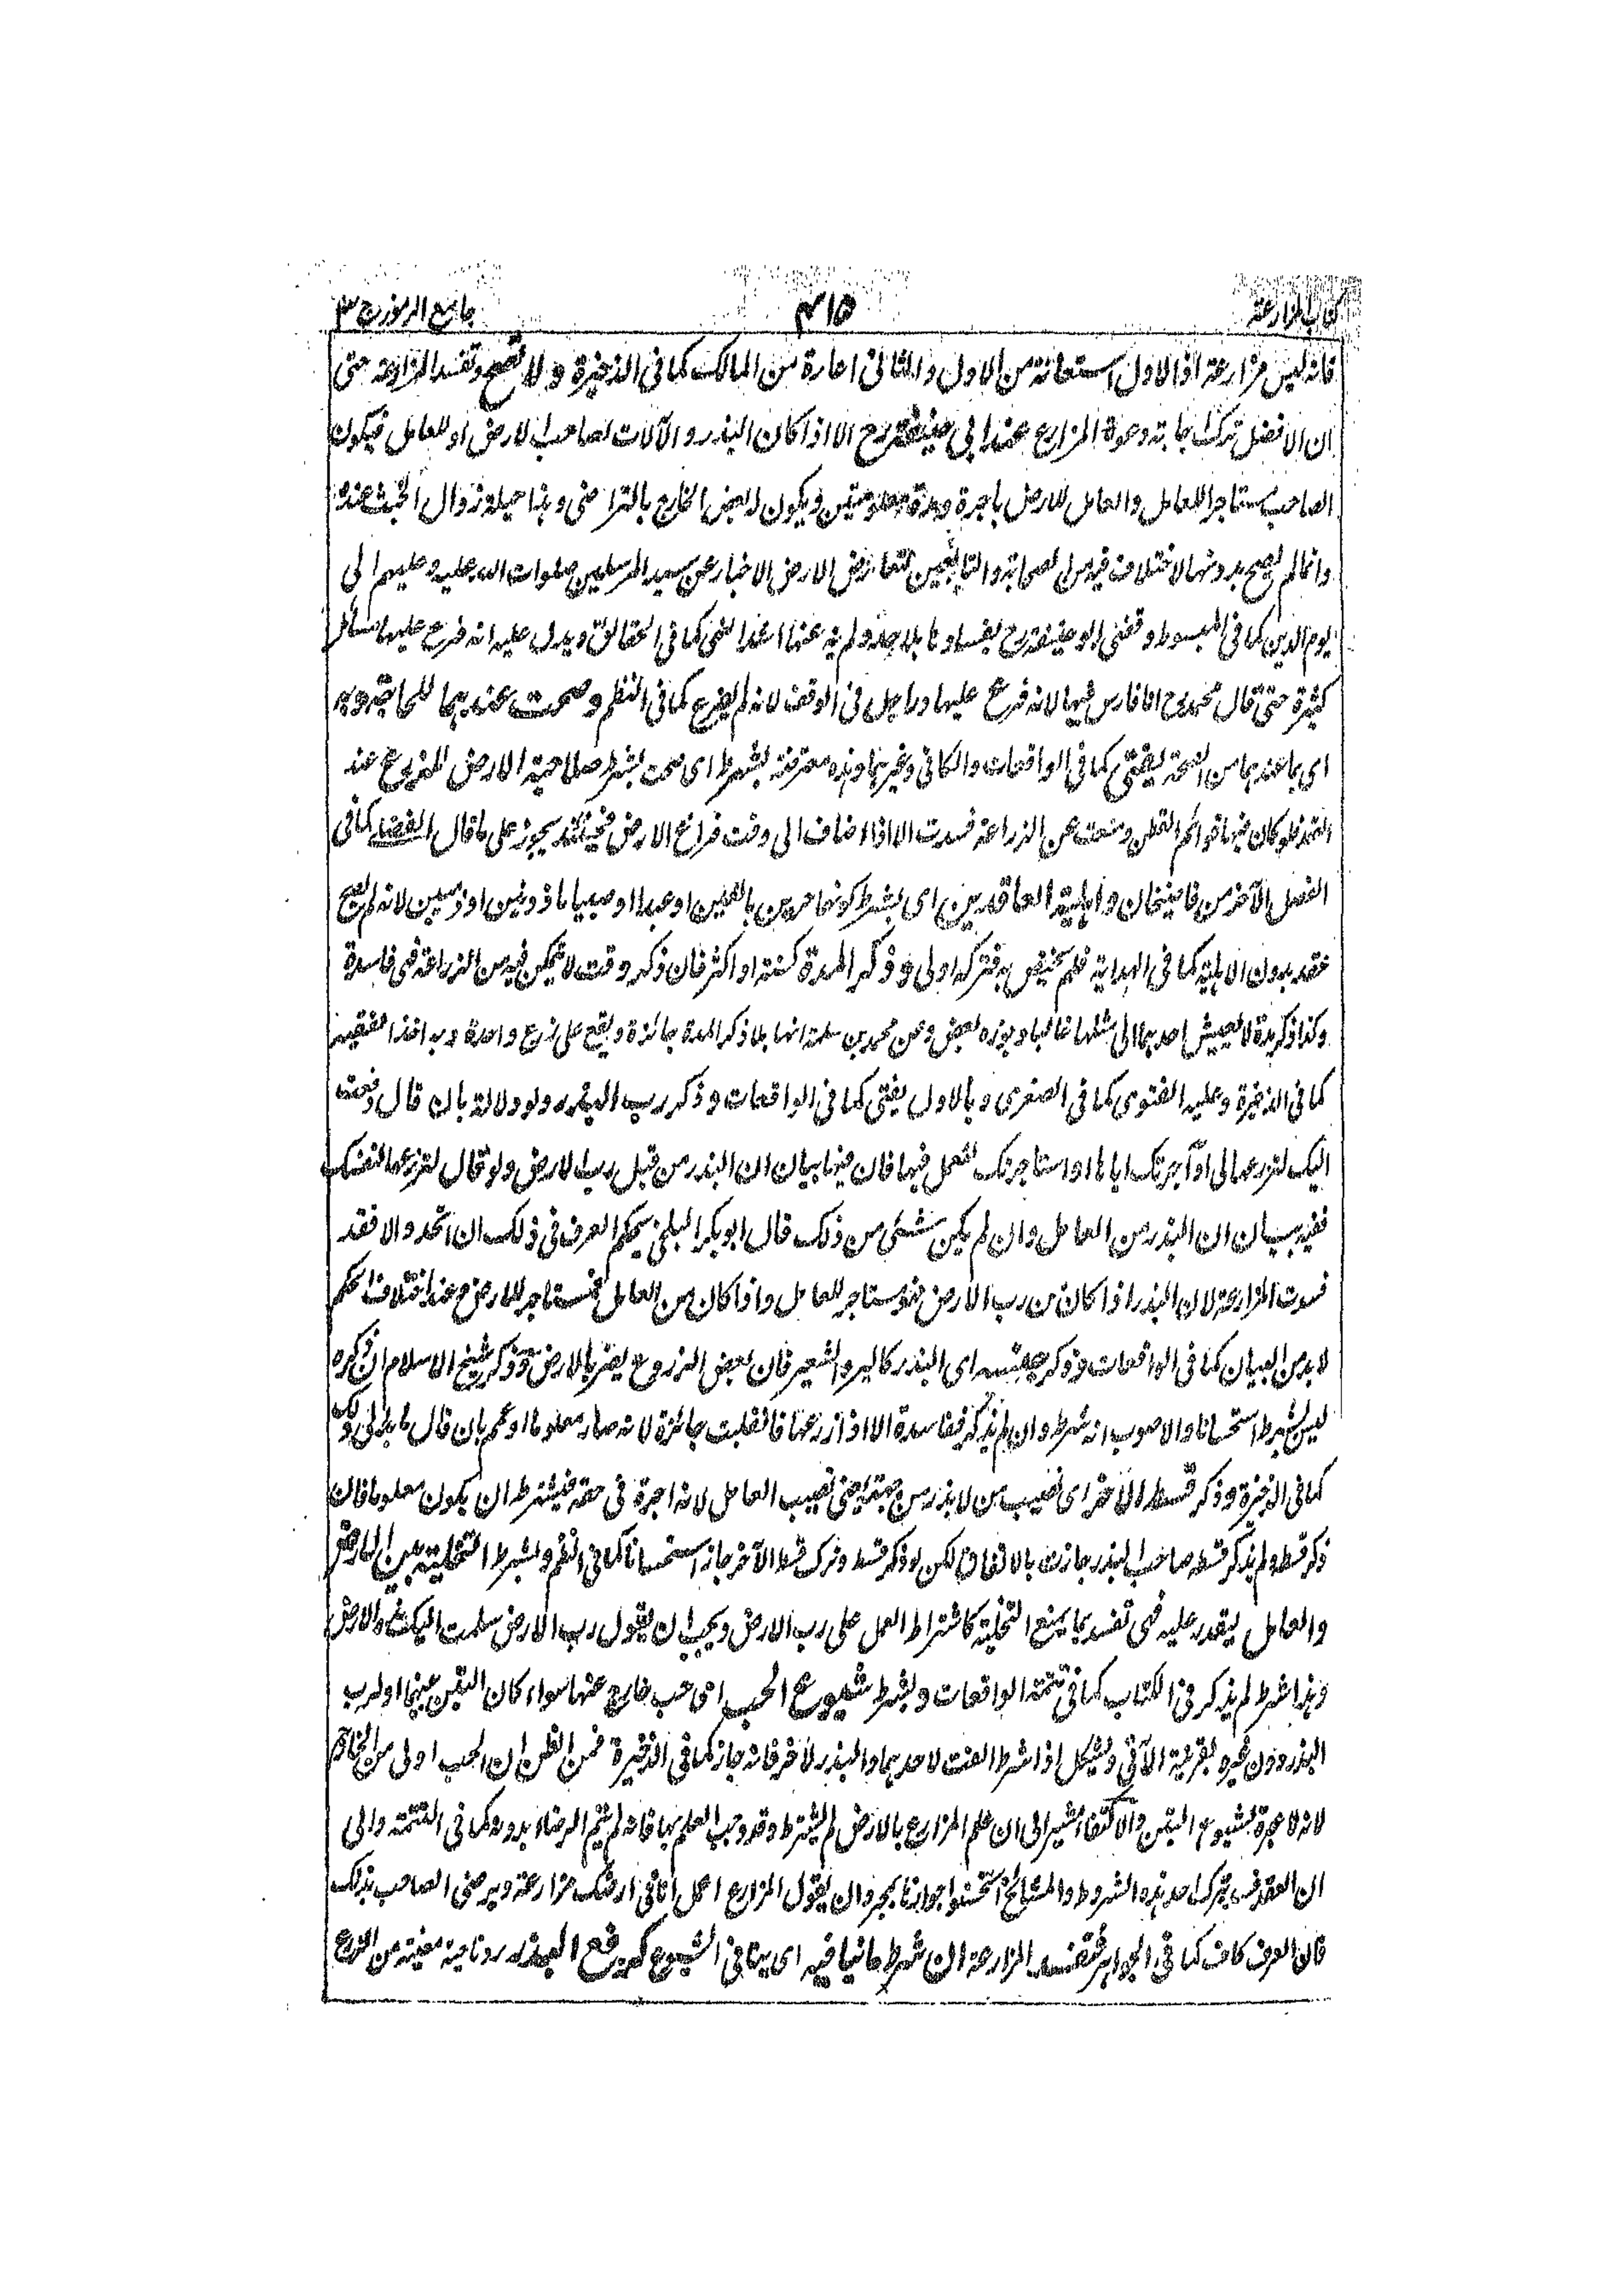 كتاب المزارعة
٤١٥
جامع الرموز ج ٣
فانه ليس مزارعة اذ الاول استعانة من الاول والثاني اعارة من المالك كما في الذخيرة ولا تصح وتفسد المزارعة حتى
ان الافضل ترك اجابة دعوة المزارع عند ابي حنيفة رح الا اذا كان البذر والآلات لصاحب الارض او للعامل فيكون
الصاحب مستاجرا للعامل والعامل للارض باجرة ومدة معلومتين ويكون له بعض الخارج بالتراضي وهذا حيلة زوال الخبث عنده
وانما لم يصح بدونها لاختلاف فيه من الصحابة والتابعين لتعارض الاخبار عن سيد المرسلين صلوات الله عليه وعليهم الى
يوم الدين كما في المبسوط وقضى ابو حنيفة رح بفسادها بلا حد ولم ينه عنها اشد النهي كما في الحقائق ويدل عليه انه فرع عليها مسائل
كثيرة حتى قال محمد رح انا فارس فيها لانه فرع عليها وراجل في الوقف لانه لم يفرع كما في النظم وصحت عندهما للحاجة وبه
اي بما عندهما من الصحة يفتى كما في الواقعات والكافي وغيرهما وهذه معترفة بشرط اي صحت بشرط صلاحية الارض للمزروع عند
العقد فلو كان فيها قوائم القطن ومنعت عن الزراعة فسدت الا اذا اضاف الى وقت فراغ الارض فحينئذ يجوز على ما قال الفضلي كما في
الفصل الآخر من قاضيخان واهلية العاقدين اي بشرط كونهما حرين بالغين او عبدا او صبيا ماذونين او ذميين لانه لم يصح
عقد بدون الاهلية كما في الهداية فلم يختص به فتركه اولى وذكر المدة كسنة او اكثر فان ذكر وقت لا يتمكن فيه من الزراعة فهي فاسدة
وكذا ذكر مدة لا يعيش احدهما الى مثلها غالبا وجوزه بعض وعن محمد بن سلمة انها بلا ذكر المدة جائزة ويقع على زرع واحدة وبه اخذ الفقيه
كما في الذخيرة وعليه الفتوى كما في الصغرى وبالاول يفتى كما في الواقعات وذكر رب البذر ولو دلالة بان قال دفعت
اليك لتزرعها لي او آجرتك اياها او استاجرتك لتعمل فيها فان فيها بيان ان البذر من قبل رب الارض ولو قال لتزرعها لنفسك
ففيه بيان ان البذر من العامل وان لم يكن شئ من ذلك قال ابو بكر البلخي يحكم العرف في ذلك ان اتحد والا فقد
فسدت المزارعة لان البذر اذا كان من رب الارض فهو مستاجر للعامل واذا كان من العامل فمستاجر للارض وعند اختلاف الحكم
لا بد من البيان كما في الواقعات وذكر جنسه اي البذر كالبر والشعير فان بعض الزروع يضر بالارض وذكر شيخ الاسلام ان ذكره
ليس بشرط استحسانا والاصوب انه شرط وان لم يذكر ففاسدة الا اذا زرعها فانقلبت جائزة لانه صار معلوما او عمم بان قال ما بدا لي ولك
كما في الذخيرة وذكر قسط الآخر اي نصيب من لا بذر من جهته يعني نصيب العامل لانه اجرة في حقه فيشترط ان يكون معلوما فان
ذكر قسطه ولم يذكر قسط صاحب البذر جازت بالاتفاق لكن لو ذكر قسطه وترك قسط الآخر جاز استحسانا كما في النظم وبشرط التخلية بين الارض
والعامل ليقدر عليه فهي تفسد بما يمنع التخلية كاشتراط العمل على رب الارض ويجب ان يقول رب الارض سلمت اليك هذه الارض
وهذا شرط لم يذكر في الكتاب كما في تتمة الواقعات وبشرط شيوع الحب اي حب خارج عنها سواء كان التبن بينهما او لرب
البذر دون غيره بقرينة الآتي ويشكل اذا شرط النصف لاحدهما والبذر لآخر فانه جاز كما في الذخيرة فمن الظن ان الحب اولى من الخارج
لانه لا عبرة بشيوع التبن والاكتفاء مشير الى ان علم المزارع بالارض لم يشترط وقد وجب العلم بها فانه لم يتم الرضاء بدونه كما في التتمة والى
ان العقد فسد بترك احد هذه الشروط والمشائخ استحسنوا جوازها بمجرد ان يقول المزارع اعمل انا في ارضك مزارعة ويرضى الصاحب بذلك
فان العرف كاف كما في الجواهر فتفسد المزارعة ان شرط ما ينافيه اي ينافي الشيوع كرفع البذر وناحية معينة من الزرع